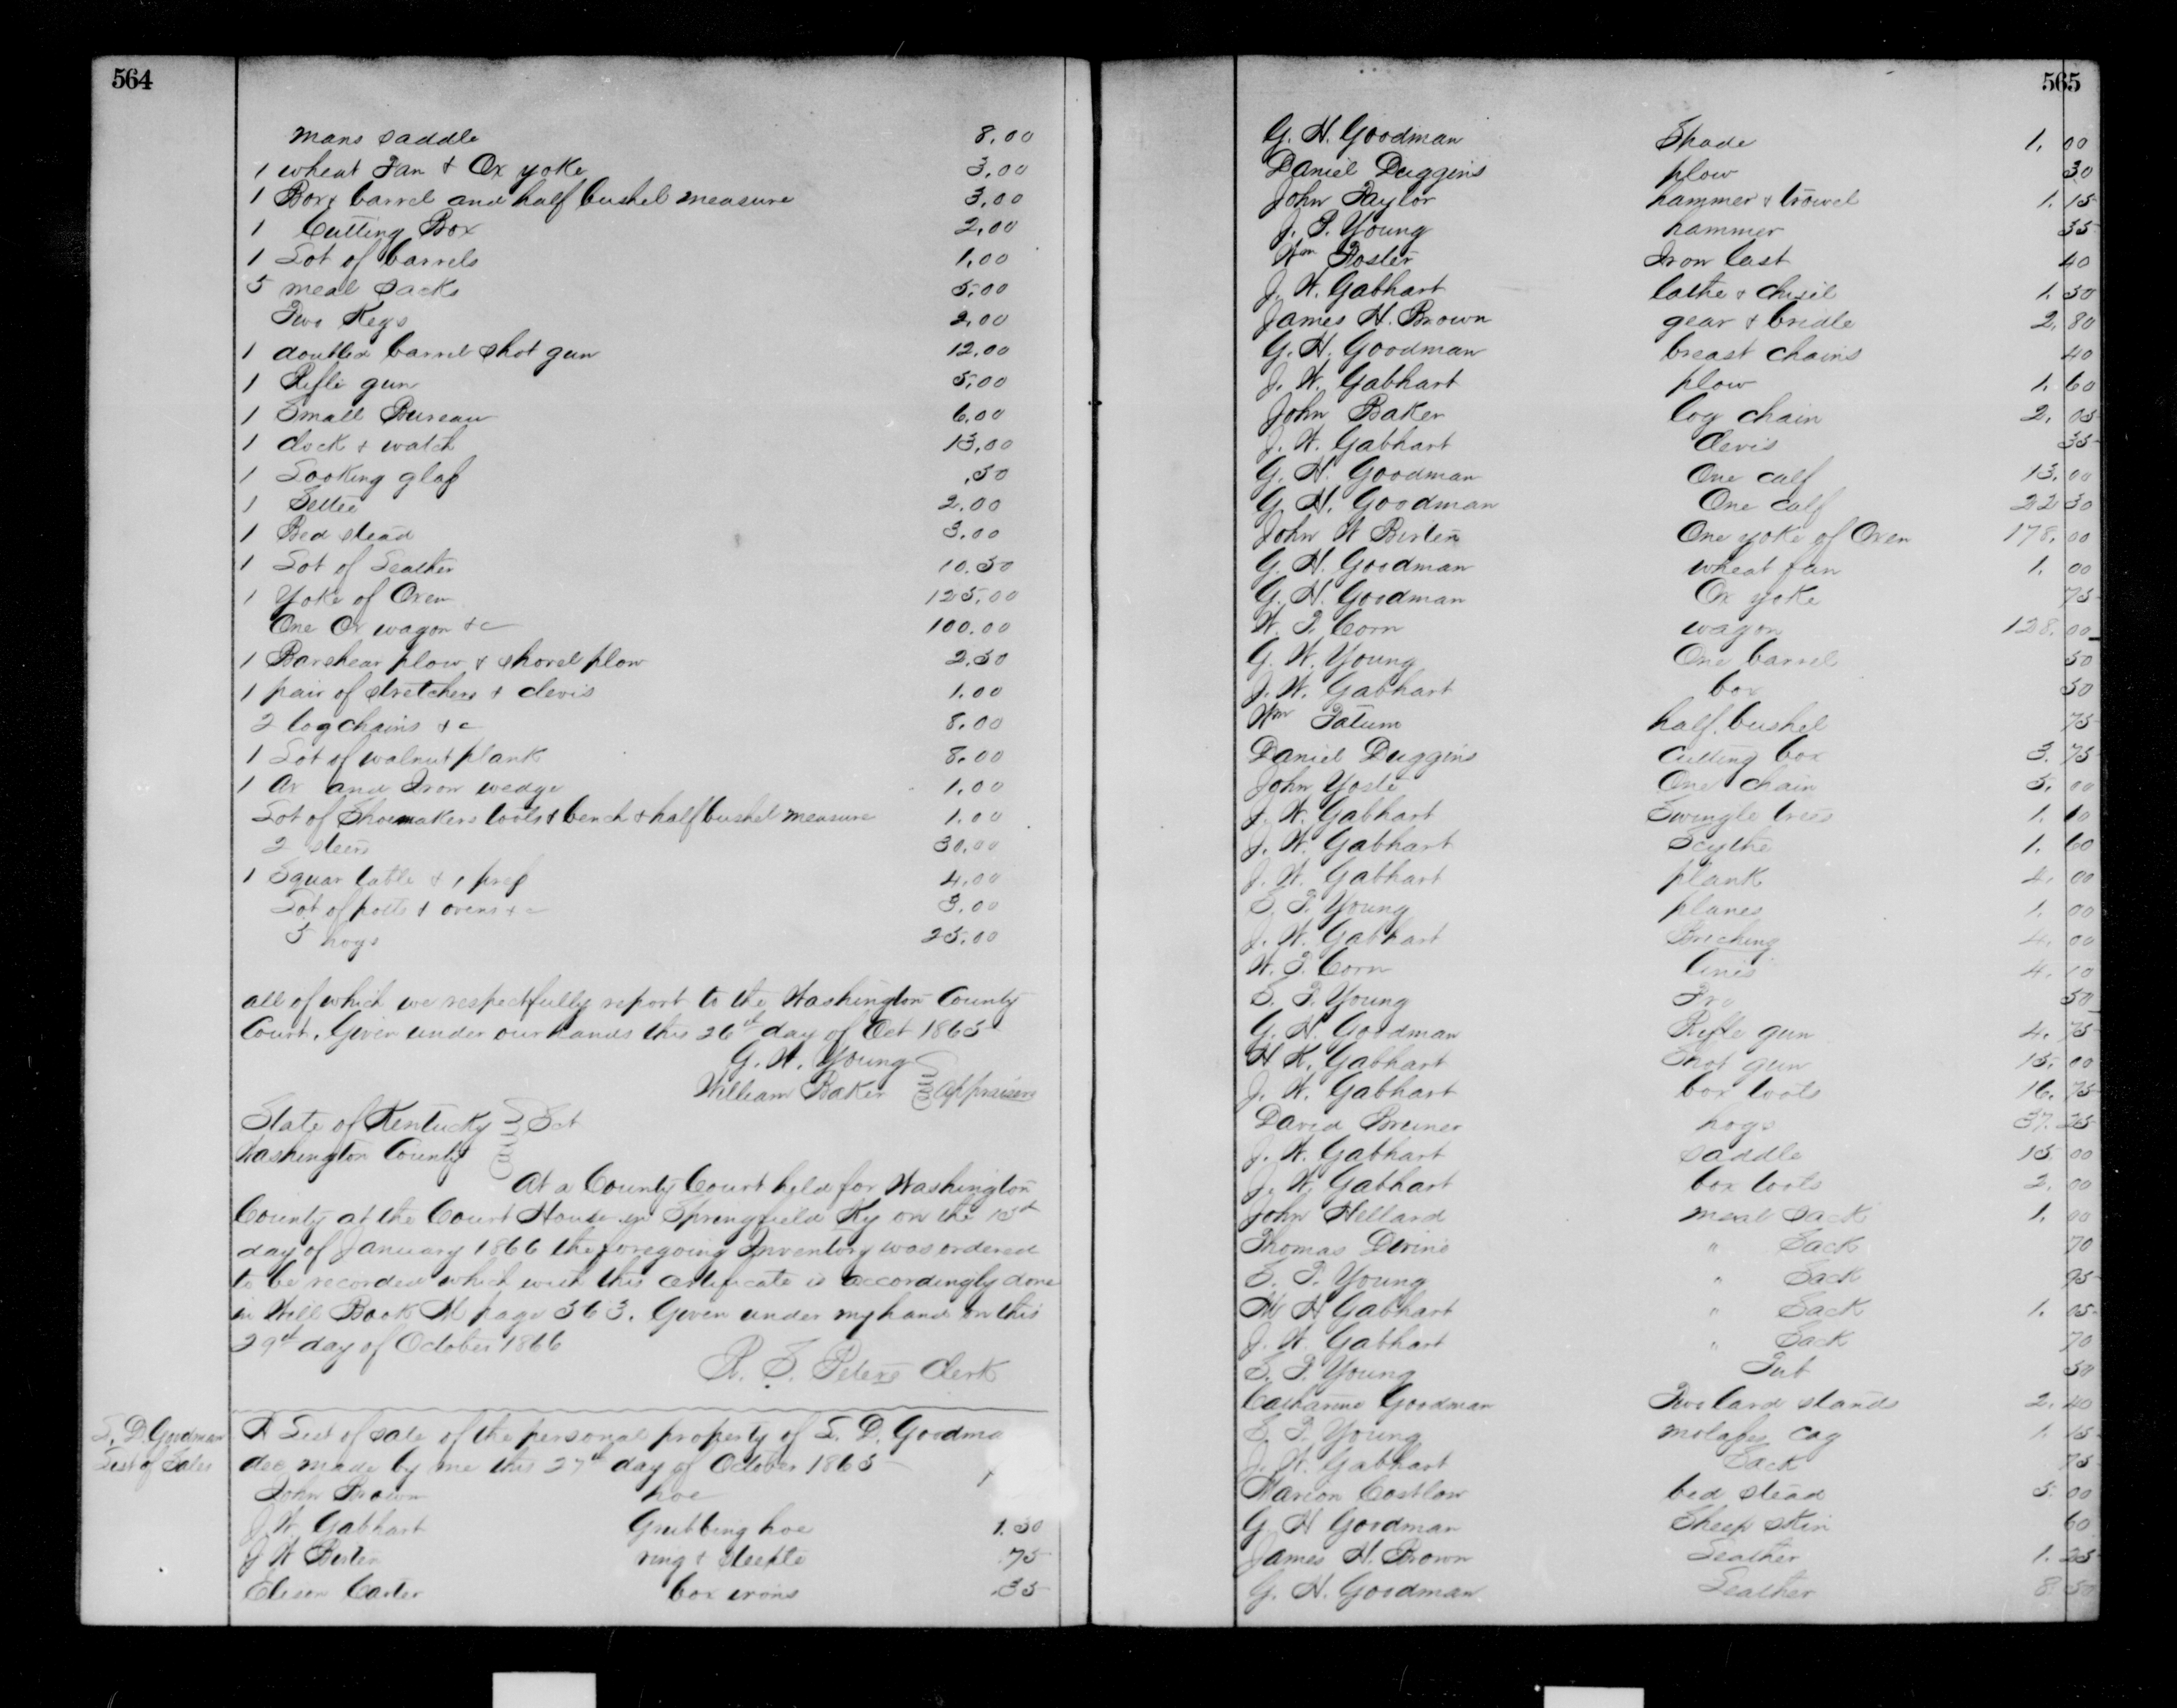 564
mans saddle 8.00
1 wheat Fan & Ox yoke 3.00
1 Box barrel and half bushel measure 3.00
1 Cutting Box 2.00
1 Lot of barrels 1.00
5 meal sacks 5.00
Two Kegs 2.00
1 doubled barrel shot gun 12.00
1 Rifle gun 5.00
1 Small Bureau 6.00
1 clock & watch 13.00
1 Looking glass .50
1 Settee 2.00
1 Bed stead 3.00
1 Lot of Leather 10.50
1 Yoke of Oxen 125.00
One Ox wagon &c 100.00
1 Barshear plow & shovel plow 2.50
1 pair of stretchers & clevis 1.00
2 log chains &c 8.00
1 Lot of walnut plank 8.00
1 Ax and Iron wedge 1.00
Lot of Shoemakers tools & bench & half bushel measure 1.00
2 steers 30.00
1 Squar table & 1 press 4.00
Lot of potts & ovens &c 3.00
5 hogs 25.00
all of which we respectfully report to the Washington County
Court. Given under our hands this 26th day of Oct 1865
G. W. Young
William Baker appraisers
State of Kentucky Sct
Washington County
At a County Court held for Washington
County at the Court House in Springfield Ky on the 15th
day of January 1866 the foregoing Inventory was ordered
to be recorded which with this certificate is accordingly done
in Will Book M page 563. Given under my hand on this
29th day of October 1866
R. S. Peters Clerk
S. D. Goodman
List of Sales
A List of sale of the personal property of S. D. Goodma
dec made by me this 27th day of October 1865
John Brown hoe
J. W. Gabhart Grubbing hoe 1.50
J W ring & steeple .75
Carter box irons .35
565
G. H. Goodman Spade 1.00
Daniel Duggins plow 30
John Taylor hammer & trowel 1.15
J. P. Young hammer 35
Wm Foster Iron last 40
J. W. Gabhart lathe & chisil 1.50
James H. Brown gear & bridle 2.80
G. H. Goodman breast chains 40
J. W. Gabhart plow 1.60
John Baker log chain 2.05
J. W. Gabhart clevis 35
G. H. Goodman One calf 13.00
G. H. Goodman One calf 22 50
John W One yoke of Oxen 178.00
G. H. Goodman wheat fan 1.00
G. H. Goodman Ox yoke 75
W. T. Corn wagon 128.00
G. W. Young One barrel 50
J. W. Gabhart box 50
Wm Tatum half bushel 75
Daniel Duggins Cutting box 3.75
John Yoste One chain 5.00
J. W. Gabhart Swingle trees 1.10
J. W. Gabhart Scythe 1.60
J. W. Gabhart plank 4.00
S. P. Young planes 1.00
J. W. Gabhart Briching 4.00
W. T. Corn lines 4.10
S. P. Young 50
G. H. Goodman Rifle gun 4.75
H K. Gabhart Shot gun 15.00
J. W. Gabhart box tools 16.75
David Bruner hogs 37.25
J. W. Gabhart saddle 15 00
J. W. Gabhart box tools 2.00
John Hellard meal sack 1.00
Thomas Devine " Sack 70
S. P. Young " Sack 95
M H Gabhart " Sack 1.05
J. W. Gabhart " Sack 70
S. P. Young Tub 50
Catharine Goodman Two lard stands 2.40
S. P. Young molasses cag 1.15
J. W. Gabhart Sack 75
Marion Costlow bed stead 5.00
G H Goodman Sheep skin 60
James H. Brown Leather 1.25
G. H. Goodman Leather 8 50